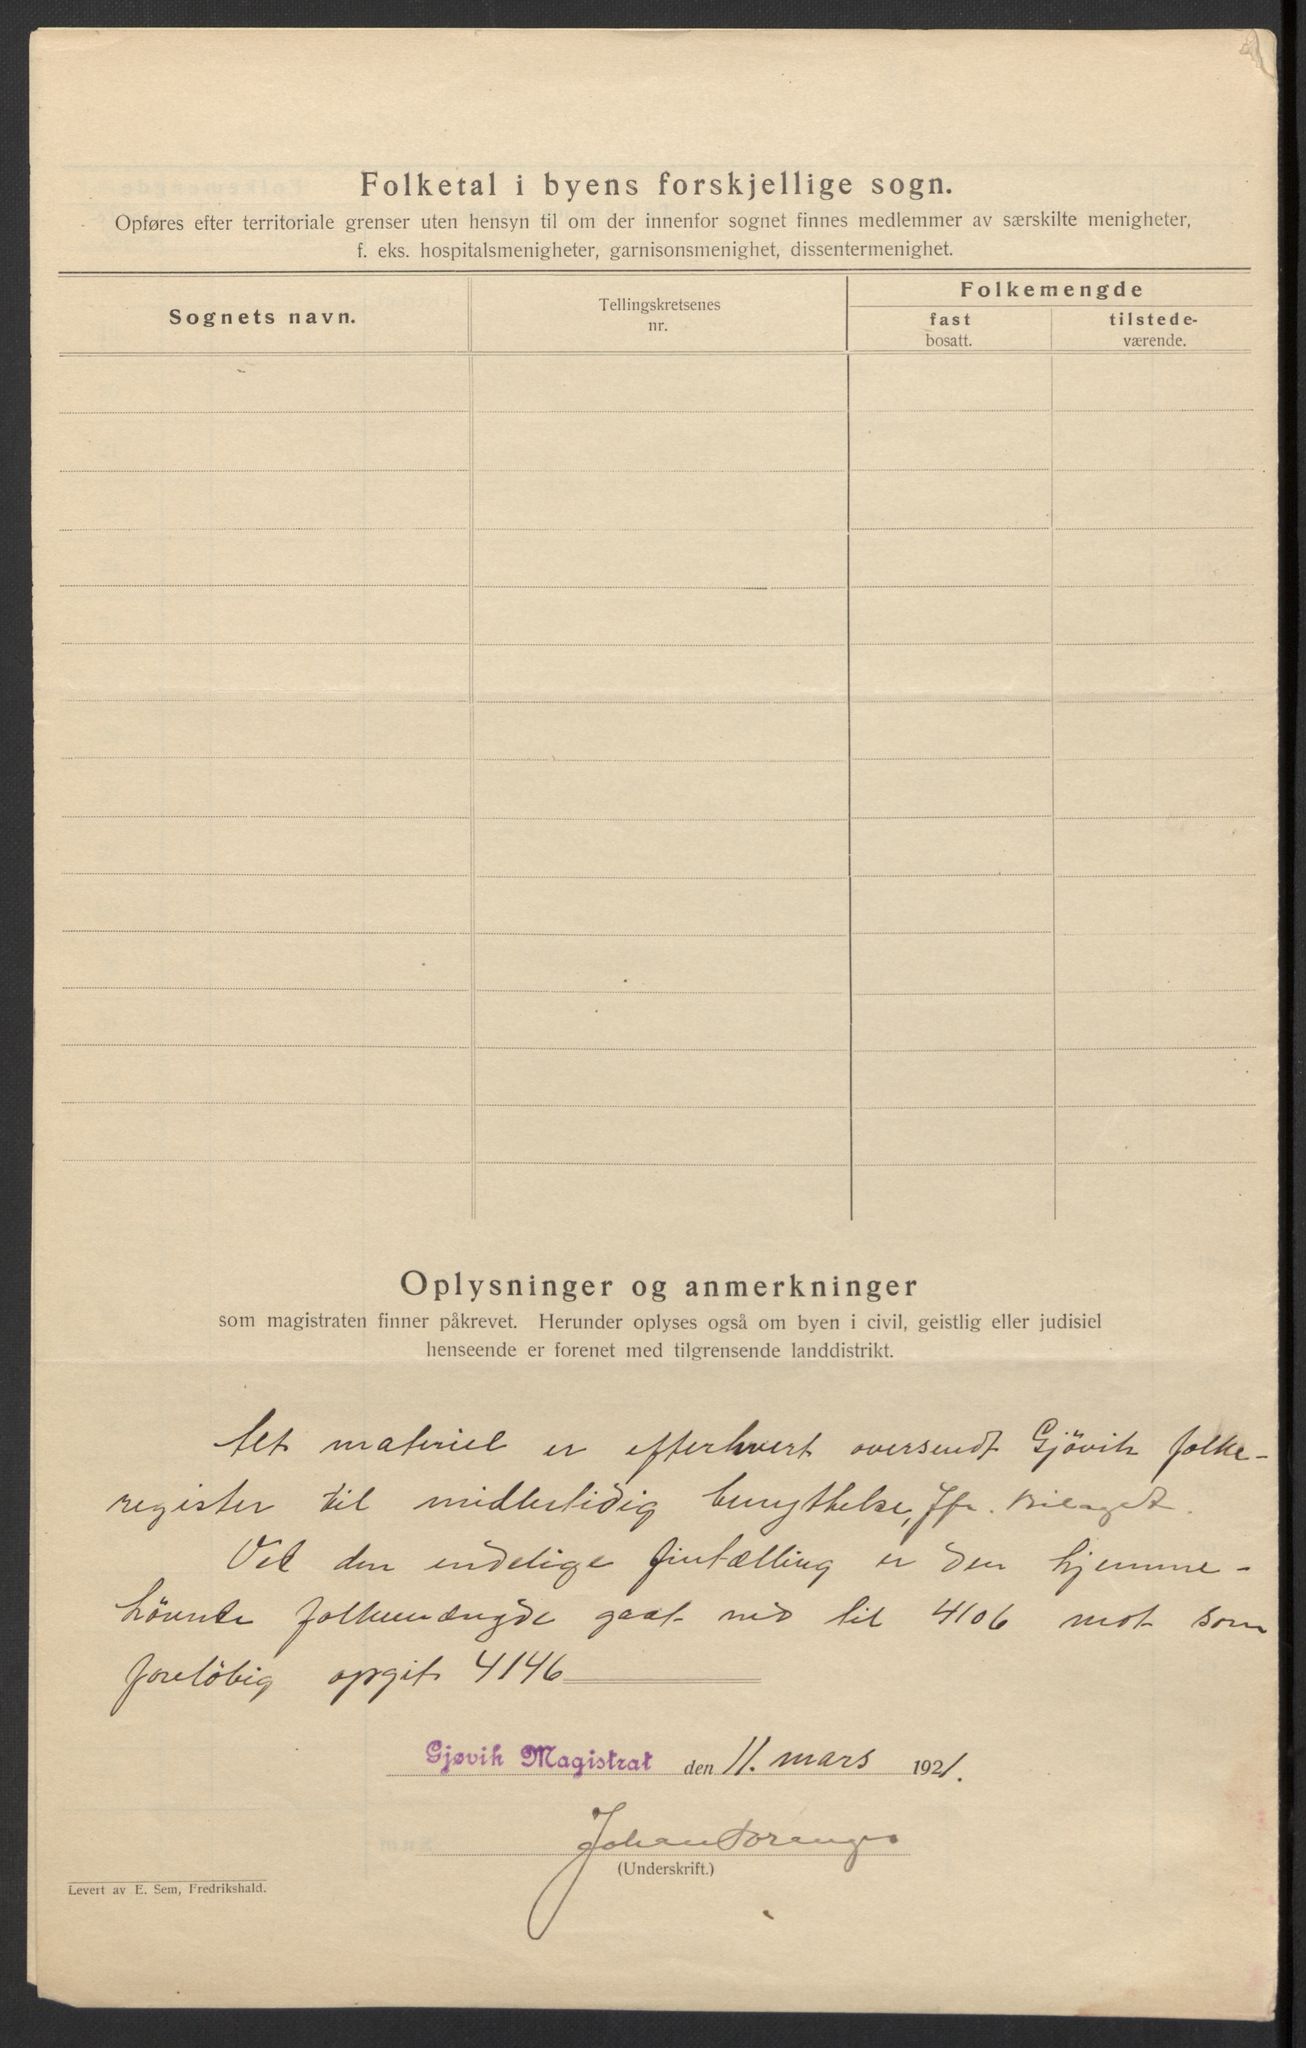 Folketal i byens forskjellige sogn.
Opføres efter territoriale grenser uten hensyn til om der innenfor sognet finnes medlemmer av særskilte menigheter,
f. eks. hospitalsmenigheter, garnisonsmenighet, dissentermenighet.
Sognets navn.
Tellingskretsenes
nr.
Folkemengde
fast
bosatt.
tilstede-
værende.
Oplysninger og anmerkninger
som magistraten finner påkrevet. Herunder oplyses også om byen i civil, geistlig eller judisiel
henseende er forenet med tilgrensende landdistrikt.
Alt materiel er efterhvert oversendt Gjövik folke-
register til midlertidig benyttelse, Jfr. bilaget.
Ved den endelige fintælling er den hjemme-
hörende folkemængde gaat ned til 4106 mot som
forelöbig opgit 4146
Gjøvik Magistrat den 11. mars 1921.
Johan
(Underskrift.)
Levert av E. Sem, Fredrikshald.